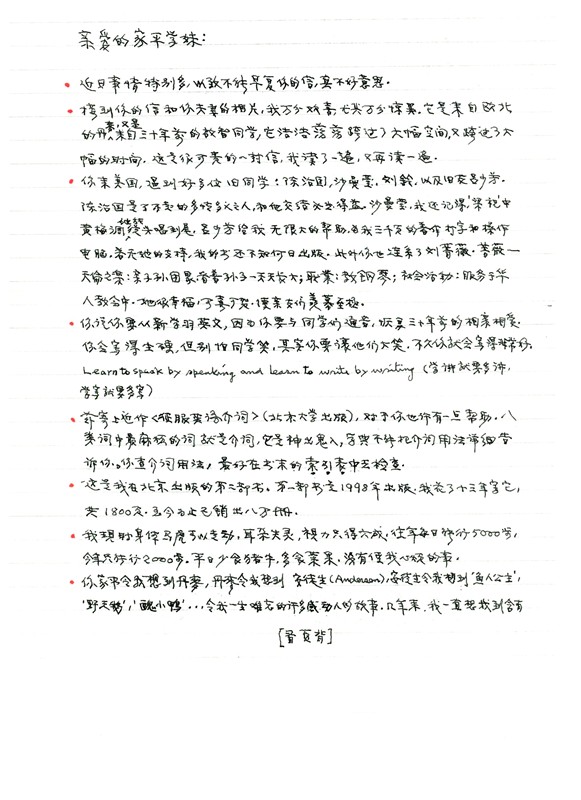 亲爱的家平学妹:
• 近日事情特别多,以致不能早复你的信,真不好意思。
• 接到你的信和你夫妻的相片,我万分欢喜尤其万分惊异。它是来自欧北
的丹麦,又是来自三十年前的故旧同学,它活活落落跨过了大幅空间,又跨过了大
幅的时间。这是很可贵的一封信,我读了一遍,又再读一遍。
• 你来美国,遇到好多位旧同学:陈治国,沙曼莹,刘
陈治国是了不起的多 沙曼莹,我还记得
黄梅调 唱到尾。 给我无限大的帮助,为我三千页的著作打字和操作
电脑。若无她的支持,我的书还不知何日出版。此外你也连系了刘蔷薇。蔷薇一
天伦之乐:妻子孙团聚 看孙子一天天长大;职业:教钢琴;社会活动:服务于华
人教会中。她很幸福,
• 你说你要从新学习英文,因为你要与同学们通音,恢复三十年前的相亲相爱。
你会写得生硬,但别怕同学笑,其实你要让他们大笑。不久你就会写得非常好。
Learn to speak by speaking and learn to write by writing (学讲就要多讲,
学写就要多写)
• 兹寄上近作《征服英语介词》(北京大学出版),对于你也许有一点帮助。八
类词中最麻烦的词就是介词,它是神出鬼入,字典不能把介词用法详细告
诉你。你查介词用法,最好在书末的索引表中去检查。
• 这是我在北京出版的第二部书。第一部书是1998年出版。我花了十三年写它,
共1800页。至今为止已销出八万册。
• 我想 可以走动,耳朵失灵,视力只得六成。往年每日步行5000步,
今年只行2000步。平日少食猪牛,多食菜果,没有使我心烦的事。
• 你家平令我想到丹麦,丹麦令我想到 安徒生(Andersen),安徒生令我想到'渔人公主',
'野天鹅','醜小鸭'...令我一生难忘的许多感动人的故事。几年来,我一直想找到含有
[看页背]